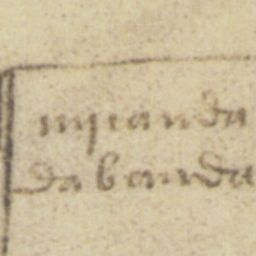 miranda
da banda